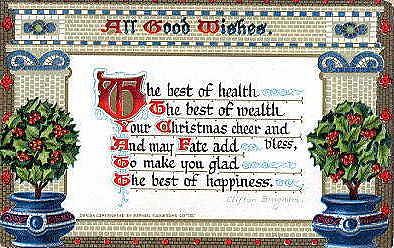 All Good Wishes.
The best of health
The best of wealth
Your Christmas cheer and
And may Fate add bless,
To make you glad
The best of happiness.
Clifton Bingham.